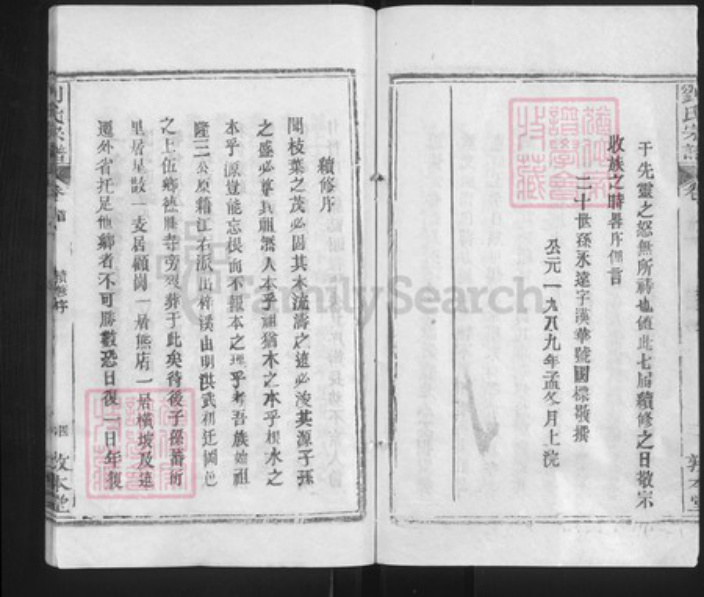 于先靈之怒無所禱也值此七届續修之日敬宗
收族之時畧序俚言
二十世孫永遠字漢華號國樑敬撰
公元一九八九年孟冬月上浣
劉氏宗譜
卷
敦本堂
續修序
聞枝葉之茂必固其木流濤之遠必浚其源子孫
之盛必尊其祖濳人本乎祖猶木之本乎根水之
本乎源豈能忘根而不報本之理乎考吾族始祖
隆三公原籍江右派出梓溪由明洪武初迁岡邑
之上伍鄉德勝寺旁裂葬于此矣待後子孫蕃衍
里居星散一支居顧岡一居熊店一居橫坡及遠
遷外省托足他鄉者不可勝數恐日復一日年復
劉氏宗譜
卷首
續修序
敦本堂
FamilySearch